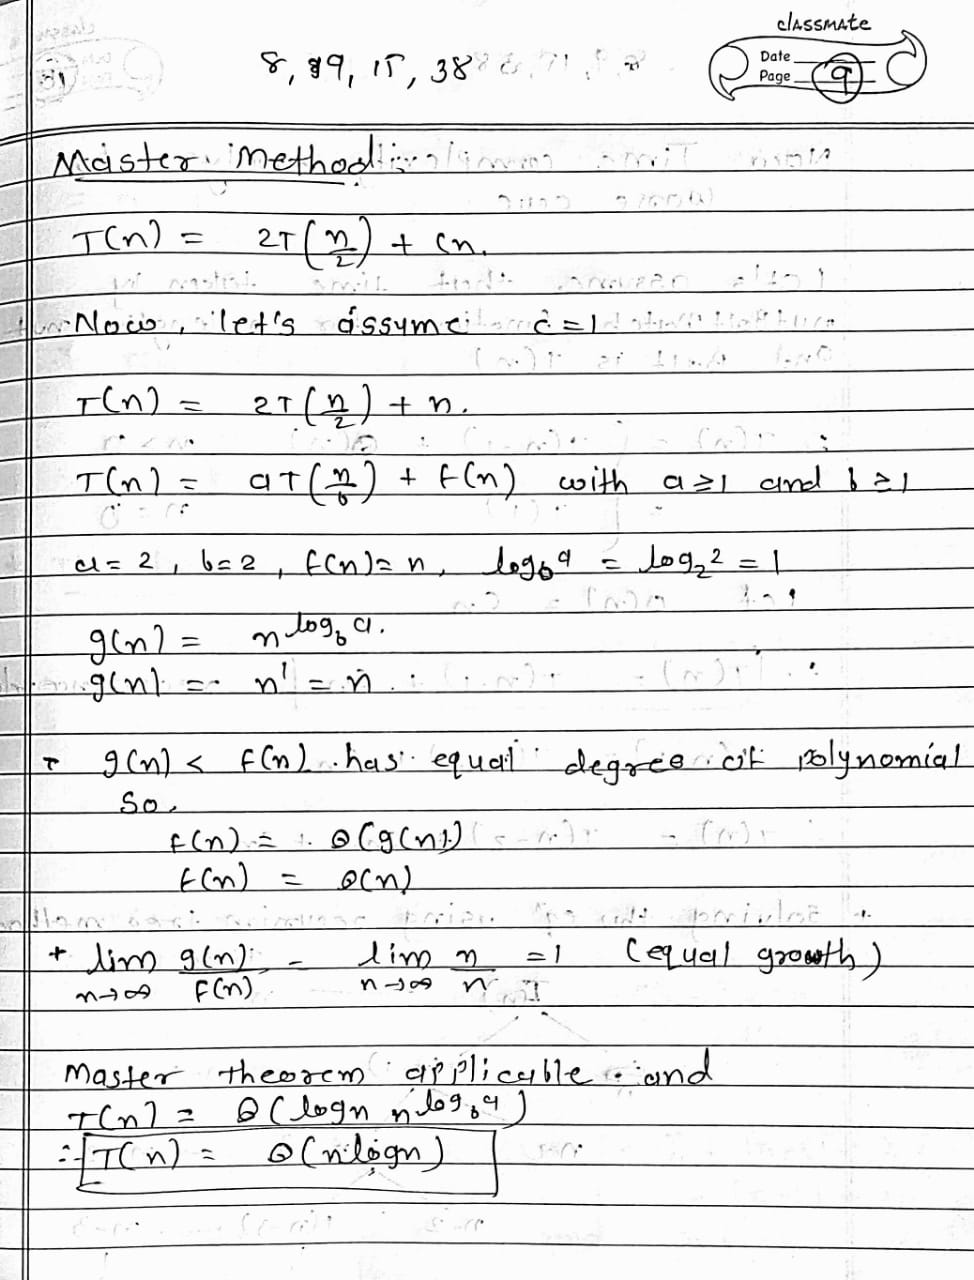 classmate
Date
Page 9
8, 9, 15, 38
Master Method:
T(n) = 2T(n/2) + cn.
Now, let's assume c = 1
T(n) = 2T(n/2) + n.
T(n) = aT(n/b) + f(n) with a ≥ 1 and b ≥ 1
a = 2, b = 2, f(n) = n, log_b a = log_2 2 = 1
g(n) = n^log_b a.
g(n) = n^1 = n.
g(n) < f(n) has equal degree of polynomial
So,
f(n) = θ(g(n))
f(n) = θ(n)
+ lim n→∞ g(n)/f(n) = lim n→∞ n/n = 1 (equal growth)
Master theorem applicable and
T(n) = θ(logn n^log_b a)
∴ T(n) = θ(n logn)